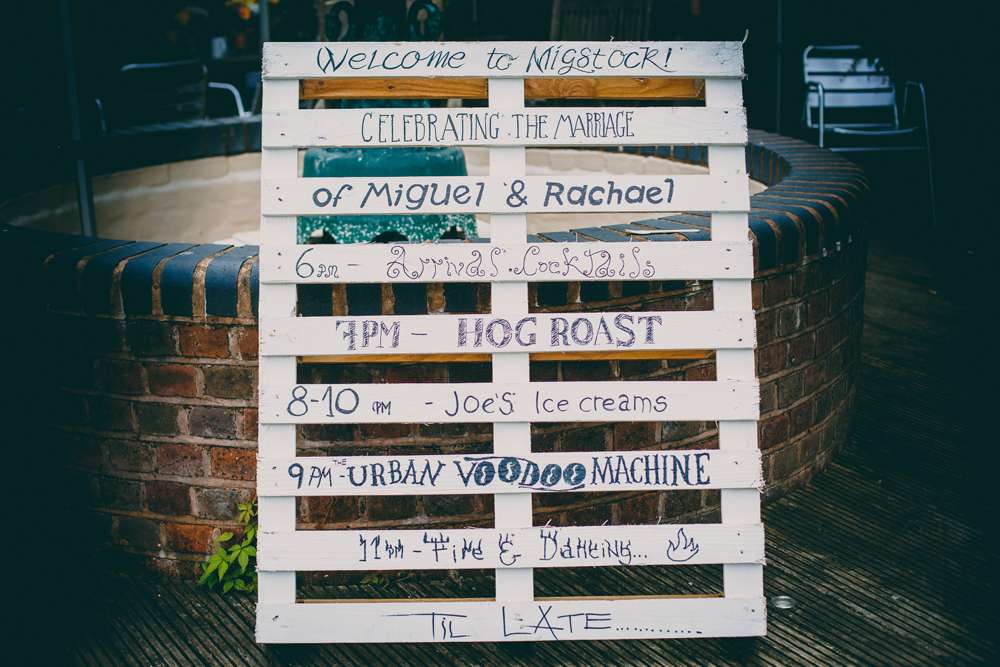 Welcome to Migstock!
CELEBRATING THE MARRIAGE
of Miguel & Rachael
6PM - Arrival Cocktails
7PM - HOG ROAST
8-10 PM - Joe's Ice creams
9PM - THE URBAN VOODOO MACHINE
11pm - Fire & Dancing...
Til LATE............